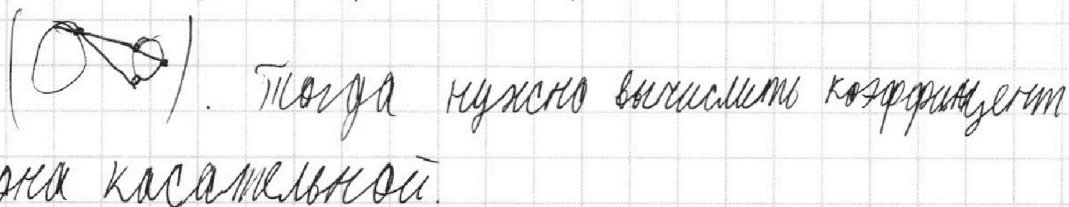 ( ). Тогда нужно вычислить коэффициент
она касательной.